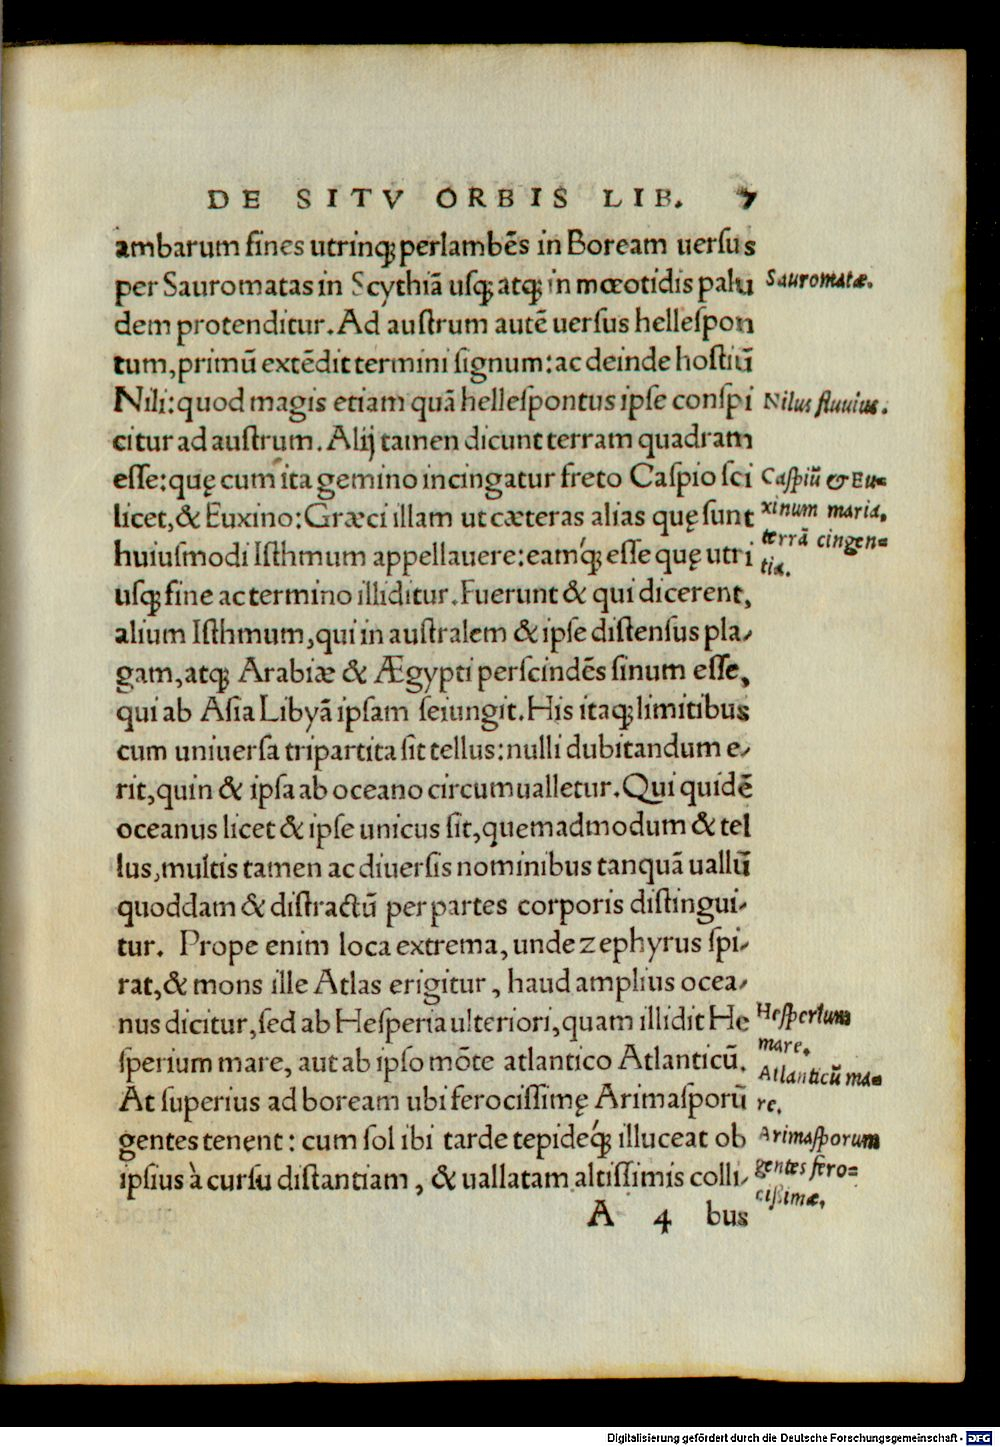 DE SITV ORBIS LIB. 7
ambarum fines utrinq; perlambẽs in Boream uersus
per Sauromatas in Scythiã usq; atq; in mœotidis palu
Sauromatæ.
dem protenditur. Ad austrum autẽ uersus hellespon
tum, primũ extẽdit termini signum: ac deinde hostiũ
Nili: quod magis etiam quã hellespontus ipse conspi
Nilus fluuius.
citur ad austrum. Alij tamen dicunt terram quadram
esse: quę cum ita gemino incingatur freto Caspio sci
Caspiũ & Eu=
licet, & Euxino: Græci illam ut cæteras alias quę sunt
xinum maria,
huiusmodi Isthmum appellauere: eamq́; esse quę utri
terrã cingen=
tia.
usq; fine ac termino illiditur. Fuerunt & qui dicerent,
alium Isthmum, qui in australem & ipse distensus pla-
gam, atq; Arabiæ & Ægypti perscindẽs sinum esse,
qui ab Asia Libyã ipsam seiungit. His itaq; limitibus
cum uniuersa tripartita sit tellus: nulli dubitandum e-
rit, quin & ipsa ab oceano circumualletur. Qui quidẽ
oceanus licet & ipse unicus sit, quemadmodum & tel
lus, multis tamen ac diuersis nominibus tanquã uallũ
quoddam & distractũ per partes corporis distingui-
tur. Prope enim loca extrema, unde zephyrus spi-
rat, & mons ille Atlas erigitur, haud amplius ocea-
nus dicitur, sed ab Hesperia ulteriori, quam illidit He
Hesperium
sperium mare, aut ab ipso mõte atlantico Atlanticũ.
mare.
Atlanticũ ma=
At superius ad boream ubi ferocissimę Arimasporũ
re.
gentes tenent: cum sol ibi tarde tepideq́; illuceat ob
Arimasporum
ipsius à cursu distantiam, & uallatam altissimis colli-
gentes fero=
cissimæ.
A 4 bus
Digitalisierung gefördert durch die Deutsche Forschungsgemeinschaft - DFG